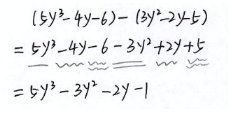 (5y³-4y-6)-(3y²-2y-5)
= 5y³-4y-6-3y²+2y+5
= 5y³-3y²-2y-1